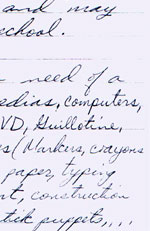 and may
school.
need of a
edias, computers,
VD, Guillotine,
s (Markers, crayons
paper, typing
nt, construction
tik puppets,...